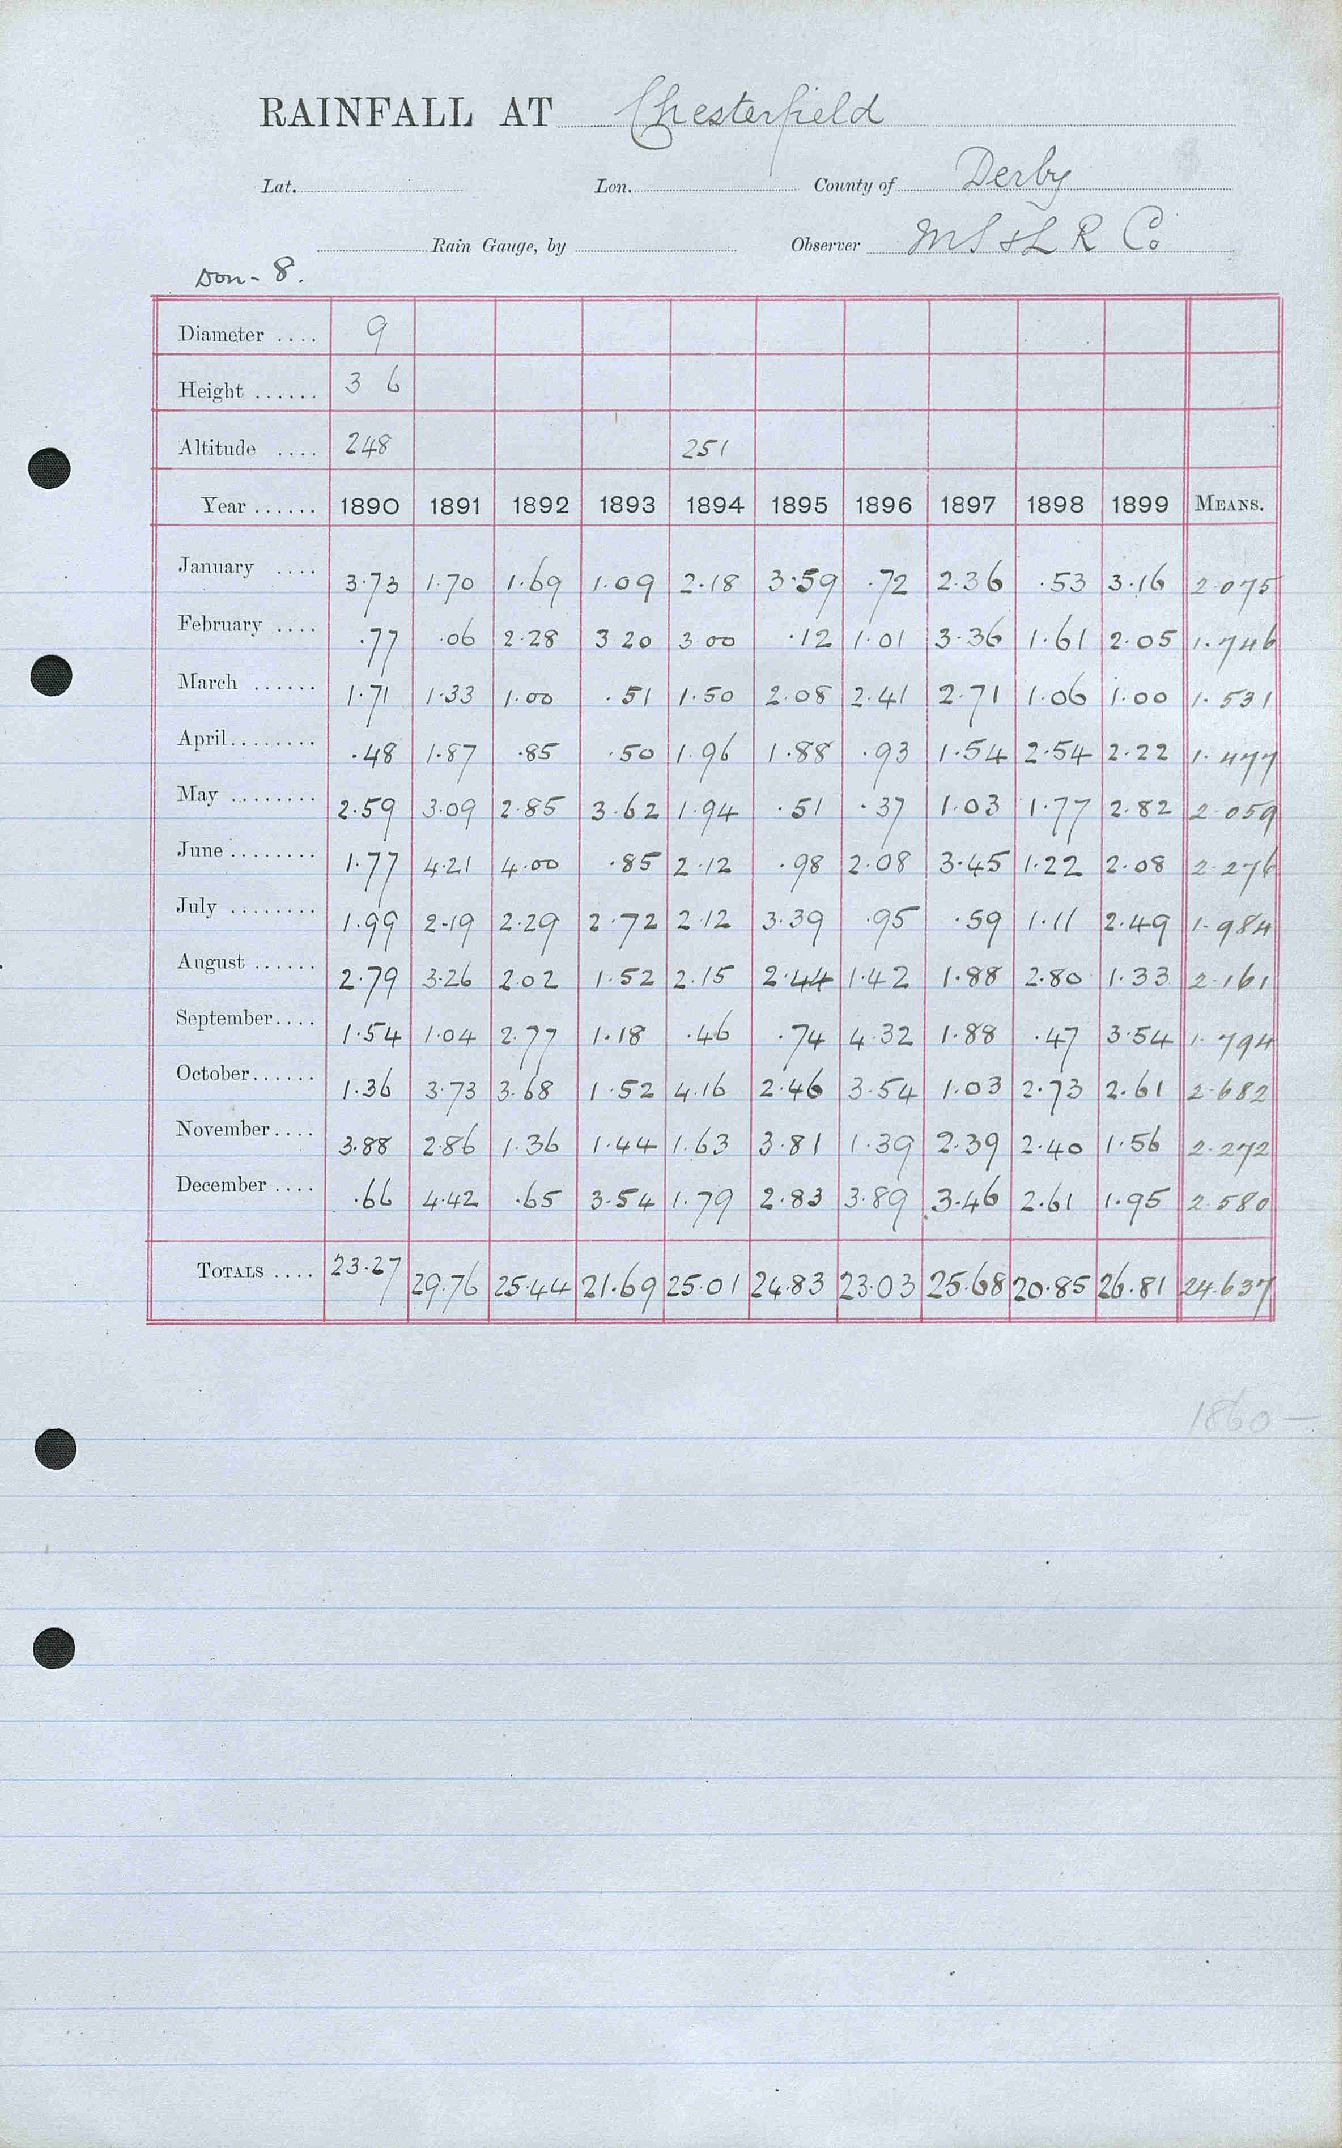 RAINFALL AT Chesterfield
Lat. Lon. County of Derby
Rain Gauge, by Observer M S & L R Co
Don - 8.
Diameter .... 9
Height ...... 3 6
Altitude .... 248 251
Year ...... 1890 1891 1892 1893 1894 1895 1896 1897 1898 1899 MEANS.
January .... 3.73 1.70 1.69 1.09 2.18 3.59 .72 2.36 .53 3.16 2.075
February .... .77 .06 2.28 3 20 3 00 .12 1.01 3.36 1.61 2.05 1.746
March ...... 1.71 1.33 1.00 .51 1.50 2.08 2.41 2.71 1.06 1.00 1.531
April ........ .48 1.87 .85 .50 1.96 1.88 .93 1.54 2.54 2.22 1.477
May ........ 2.59 3.09 2.85 3.62 1.94 .51 .37 1.03 1.77 2.82 2.059
June ........ 1.77 4.21 4.00 .85 2.12 .98 2.08 3.45 1.22 2.08 2.276
July ........ 1.99 2.19 2.29 2.72 2.12 3.39 .95 .59 1.11 2.49 1.984
August ...... 2.79 3.26 2.02 1.52 2.15 2.44 1.42 1.88 2.80 1.33 2.161
September .... 1.54 1.04 2.77 1.18 .46 .74 4.32 1.88 .47 3.54 1.794
October ...... 1.36 3.73 3.68 1.52 4.16 2.46 3.54 1.03 2.73 2.61 2.682
November .... 3.88 2.86 1.36 1.44 1.63 3.81 1.39 2.39 2.40 1.56 2.272
December .... .66 4.42 .65 3.54 1.79 2.83 3.89 3.46 2.61 1.95 2.580
TOTALS .... 23.27 29.76 25.44 21.69 25.01 24.83 23.03 25.68 20.85 26.81 24.637
1860 —